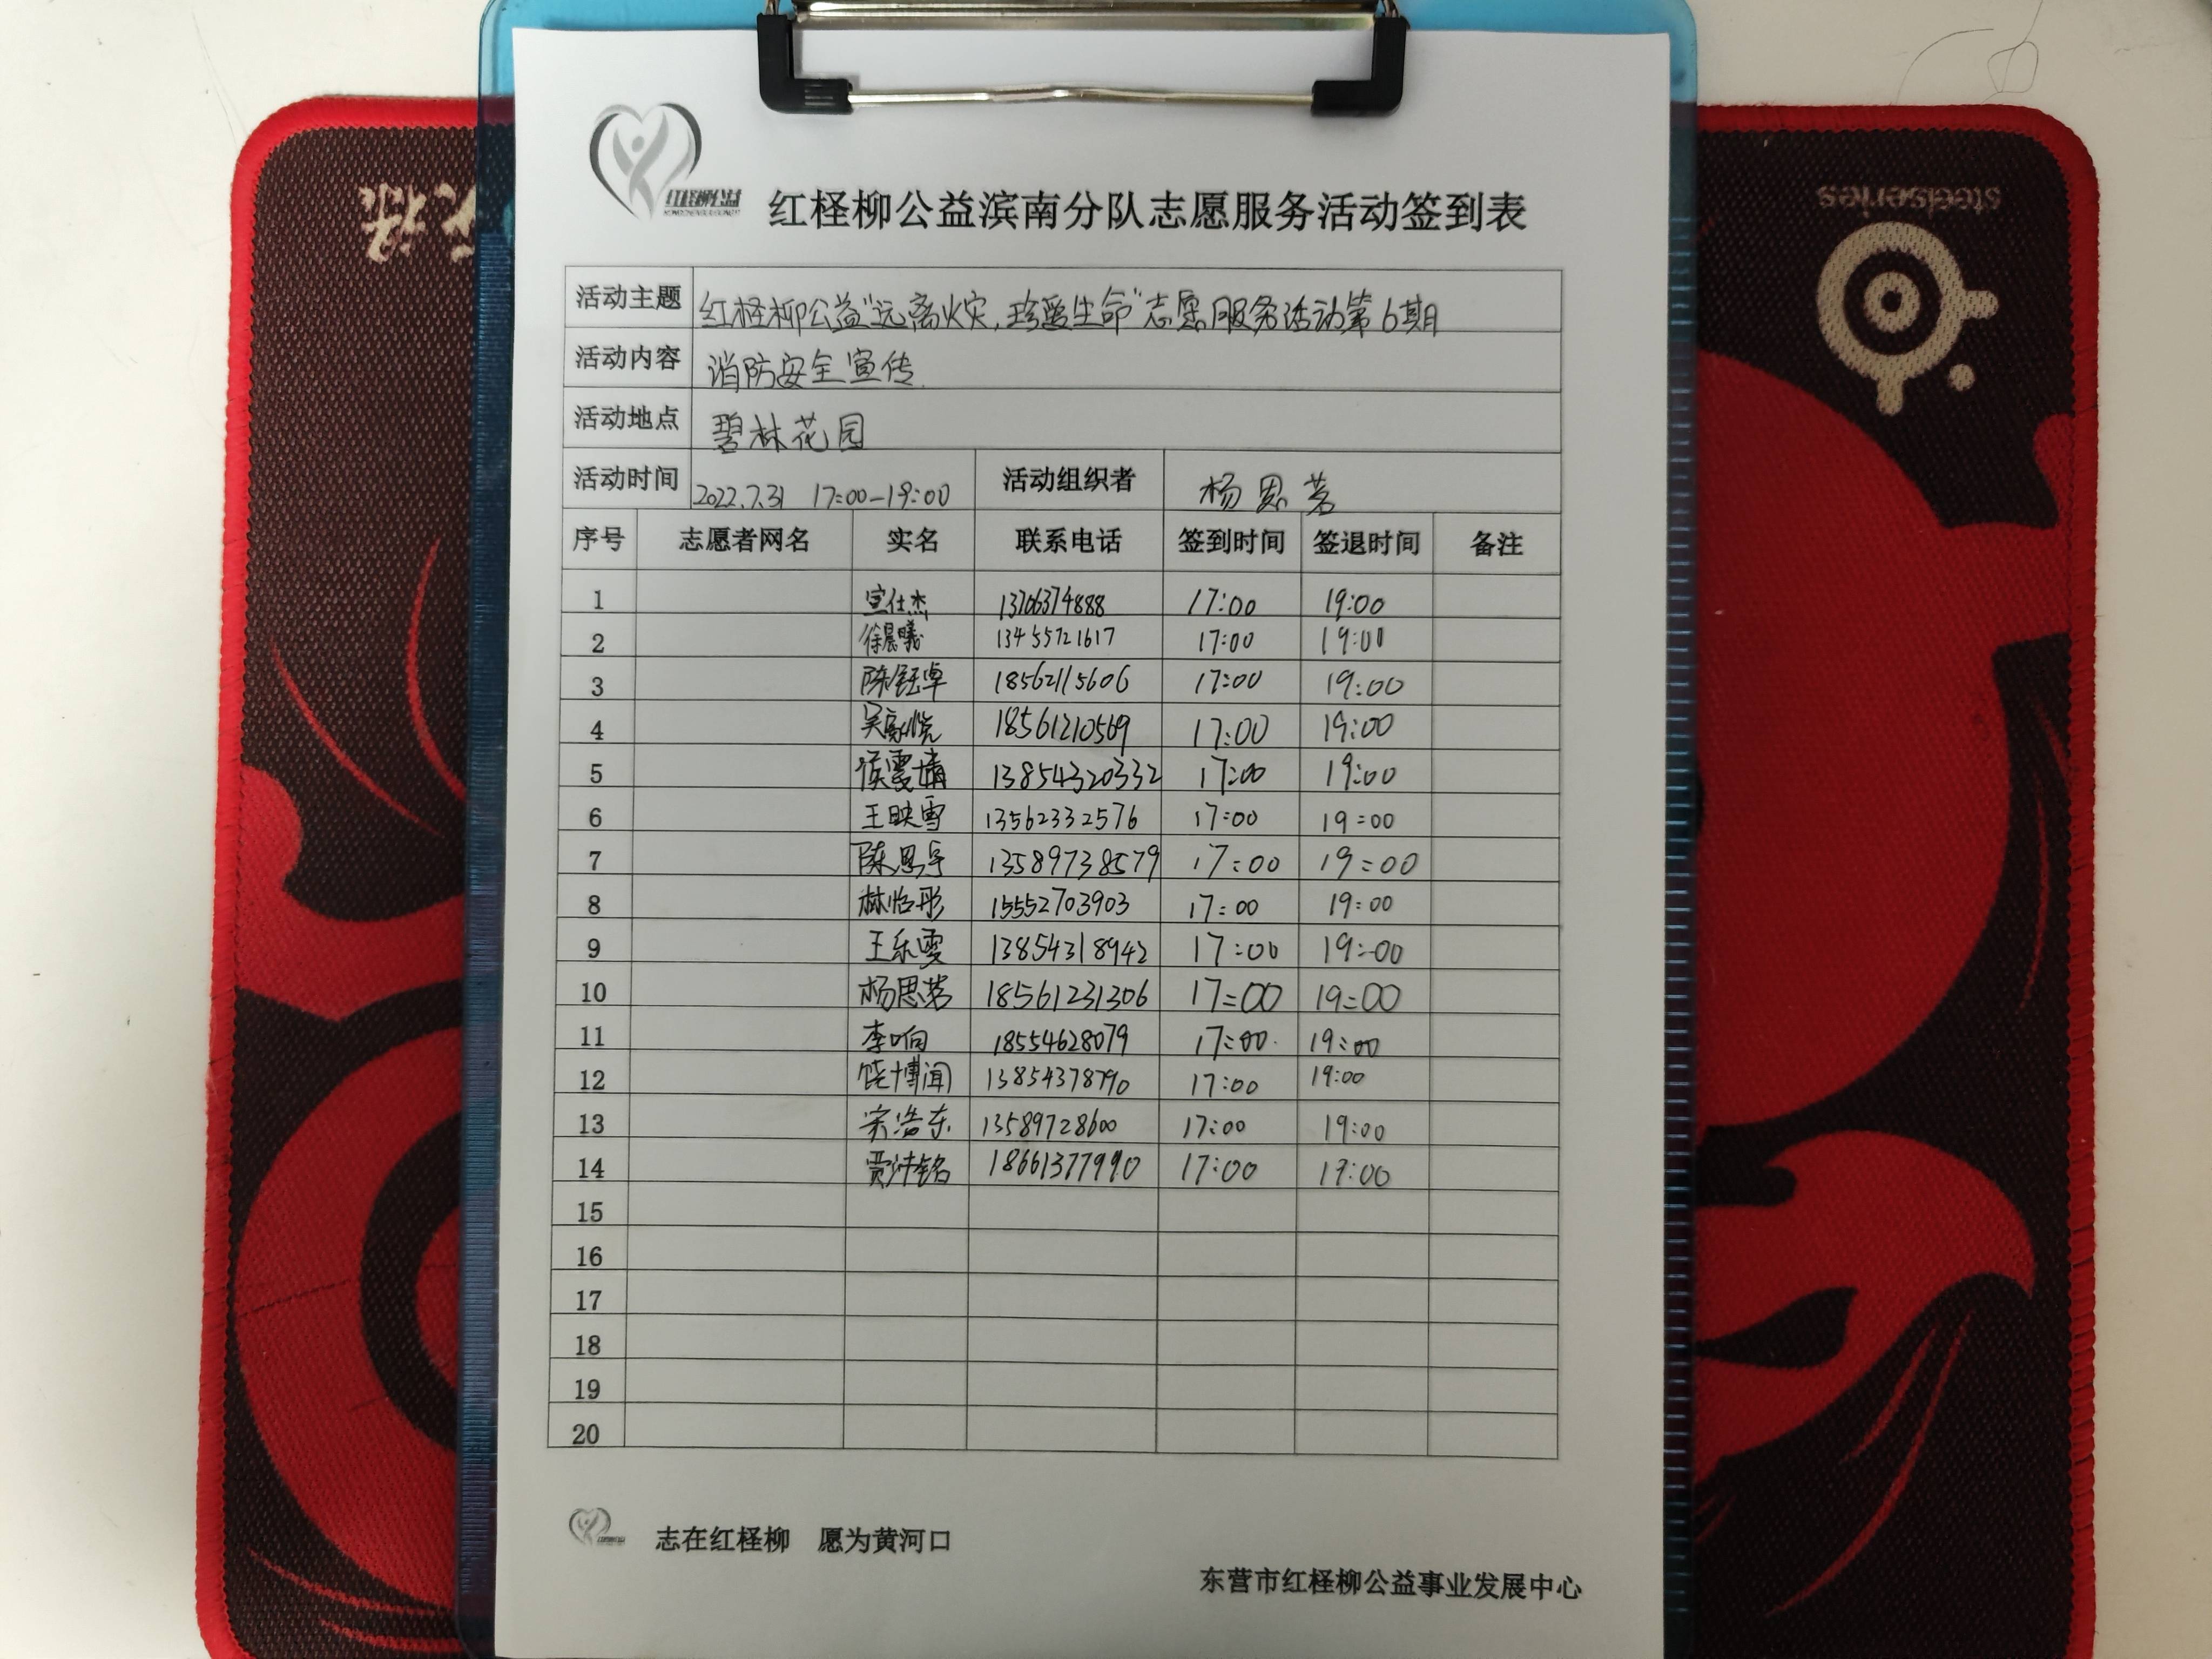 红柽柳公益
红柽柳公益滨南分队志愿服务活动签到表
活动主题 红柽柳公益"远离火灾,珍爱生命"志愿服务活动第6期
活动内容 消防安全宣传
活动地点 碧林花园
活动时间 2022.7.31 17:00-19:00 活动组织者 杨思茗
序号 志愿者网名 实名 联系电话 签到时间 签退时间 备注
1 宣仕杰 13706374888 17:00 19:00
2 徐晨曦 13455721617 17:00 19:00
3 陈钰卓 18562115606 17:00 19:00
4 吴家悦 18561210569 17:00 19:00
5 侯雯婧 13854320332 17:00 19:00
6 王映雪 13562332576 17:00 19:00
7 陈思宇 13589738579 17:00 19:00
8 林怡彤 15552703903 17:00 19:00
9 王乐雯 13854318942 17:00 19:00
10 杨思茗 18561231306 17:00 19:00
11 李响 18554628079 17:00 19:00
12 饶博闻 13854378790 17:00 19:00
13 宋浩东 13589728600 17:00 19:00
14 贾沣铭 18661377990 17:00 19:00
15
16
17
18
19
20
志在红柽柳 愿为黄河口
东营市红柽柳公益事业发展中心
steelseries